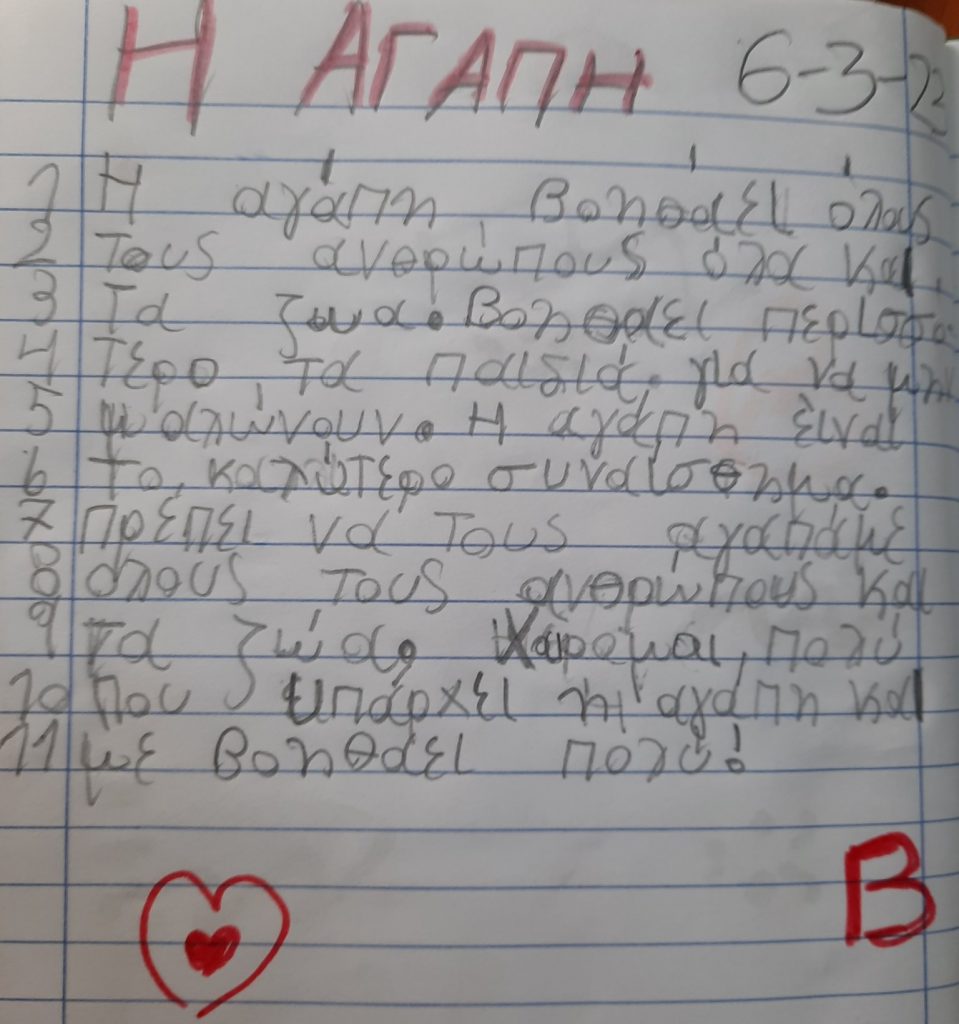 Η ΑΓΑΠΗ 6-3-22
1 Η αγάπη βοηθάει όλους
2 τους ανθρώπους όλα και
3 τα ζωα. Βοηθάει περισσο
4 τερο τα παιδιά. για να μην
5 μαλώνουν. Η αγάπη είναι
6 το καλύτερο συναίσθημα.
7 πρέπει να τους αγαπάμε
8 όλους τους ανθρώπους και
9 τα ζώα. Χαίρομαι, πολύ
10 που υπάρχει η αγάπη και
11 με βοηθάει πολύ!
Β